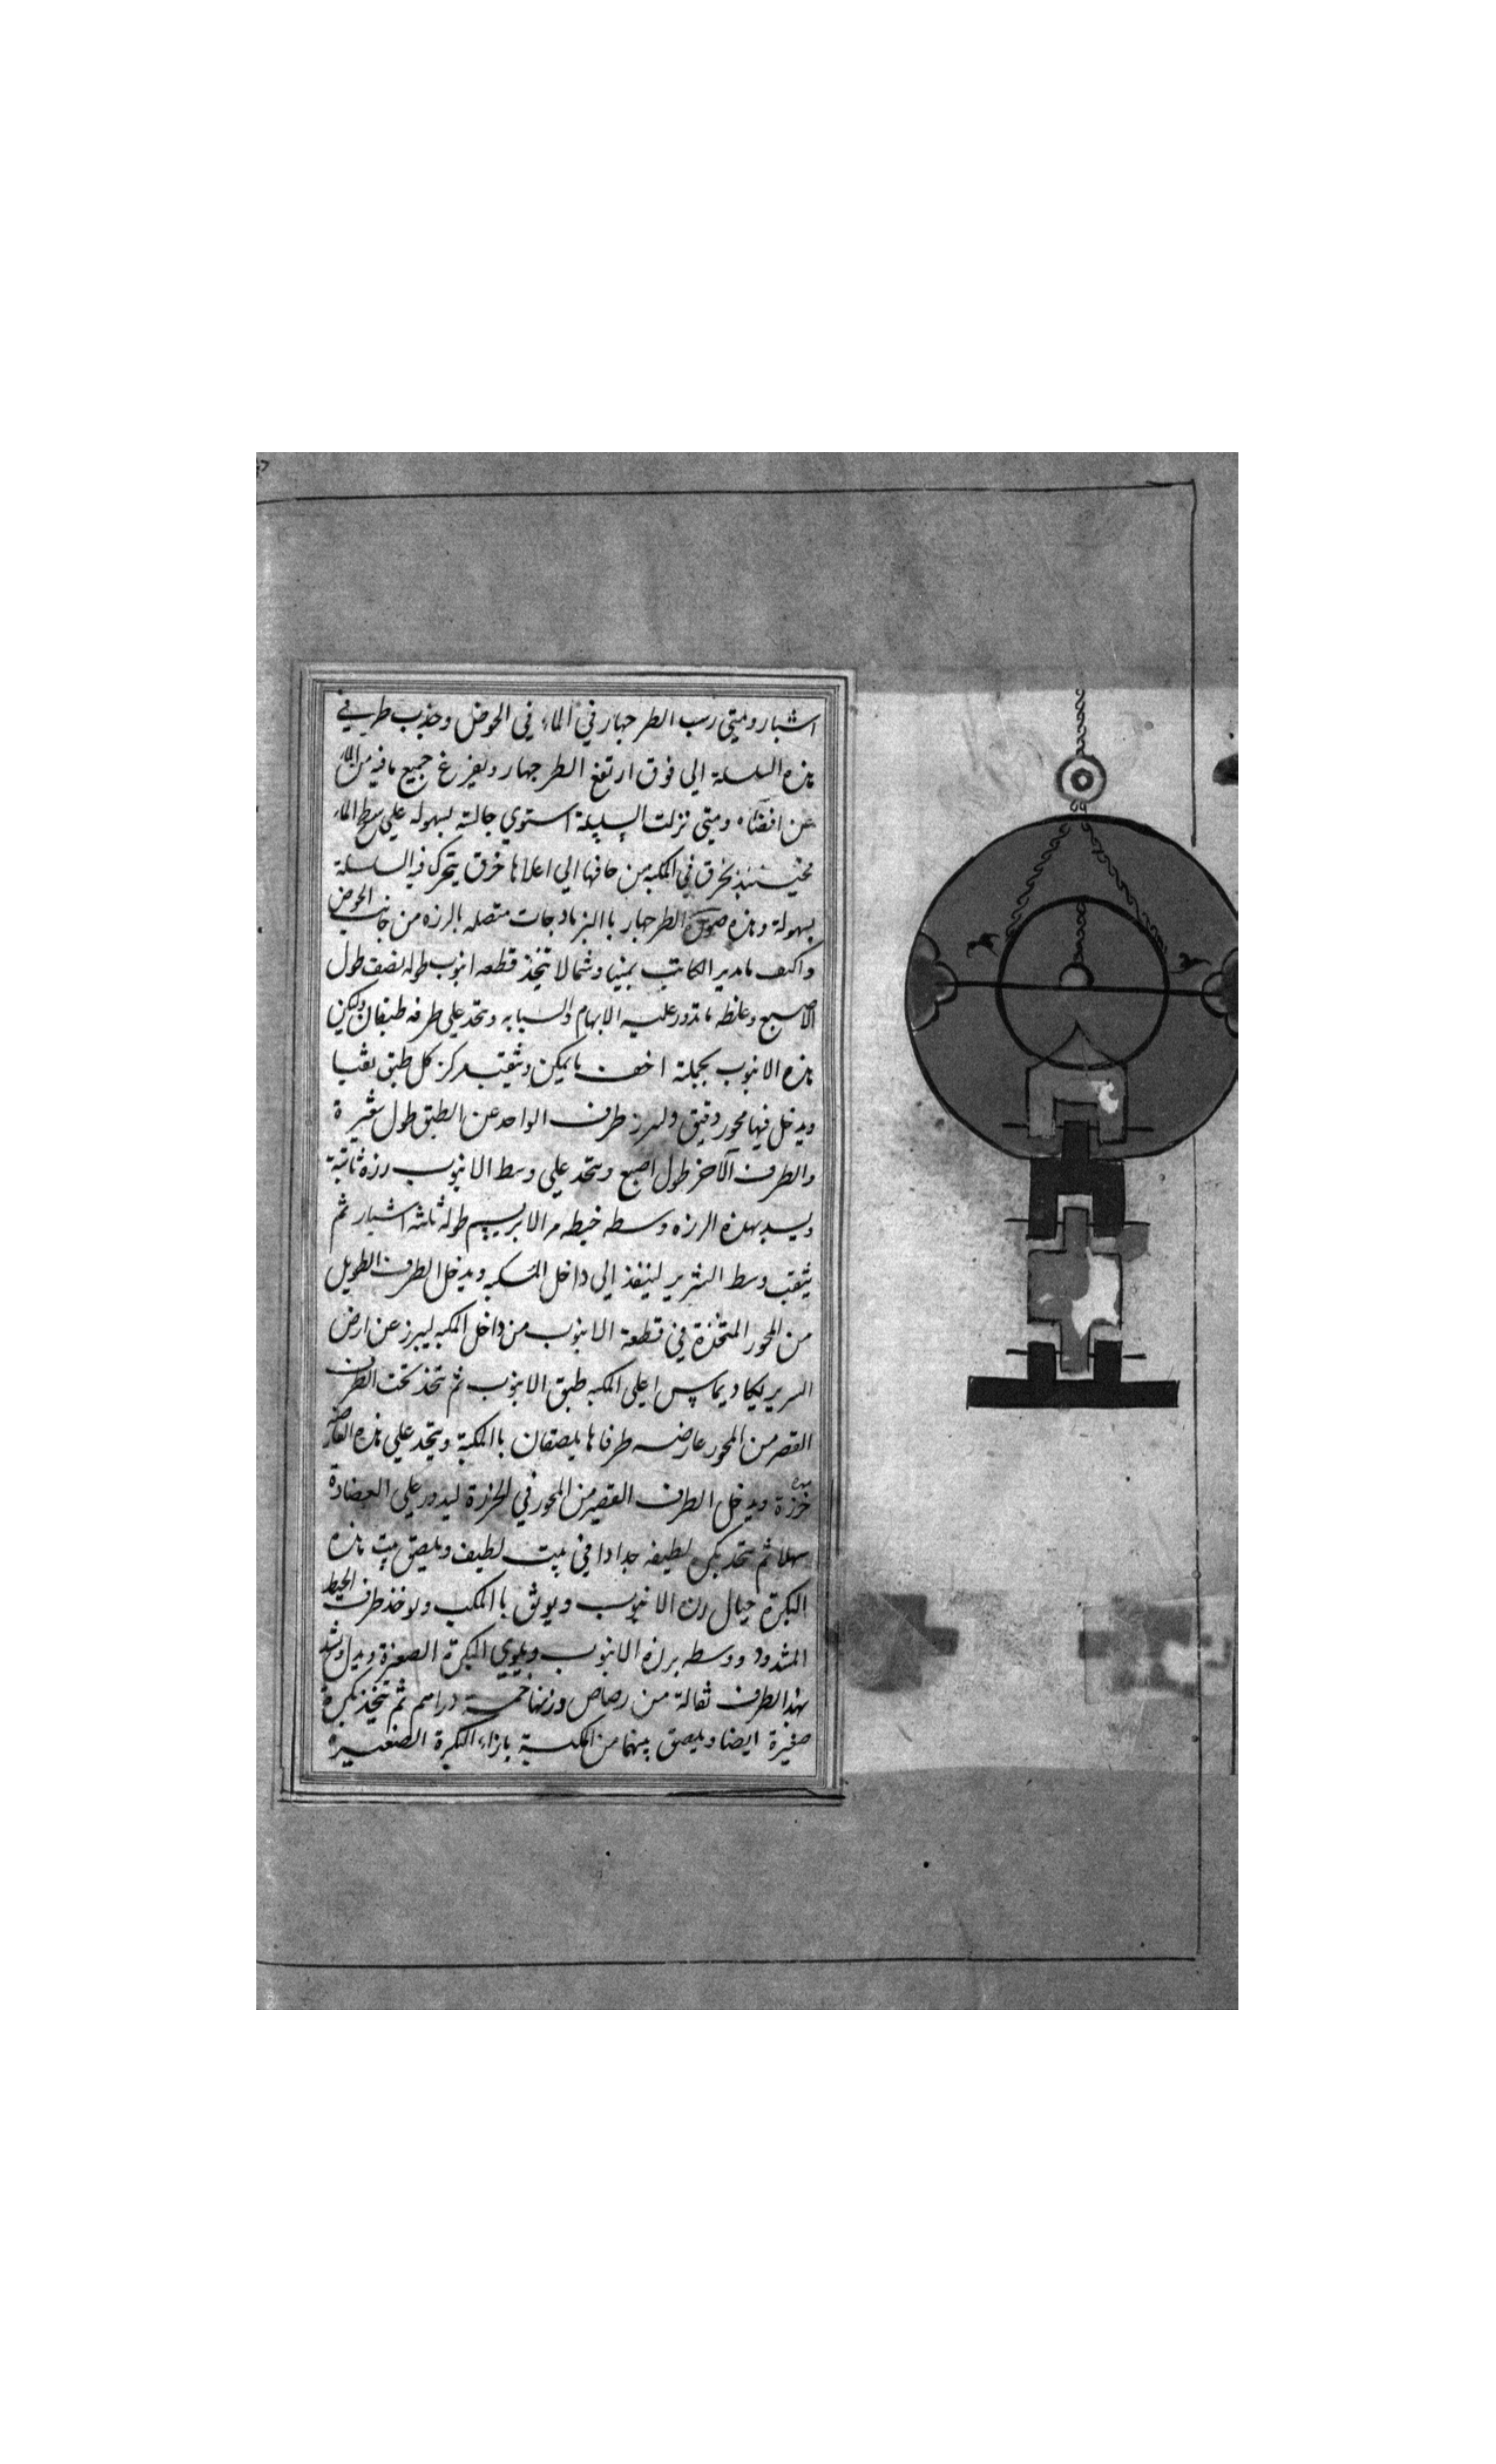 اشبار ومتى رسب الطرجهار في الماء في الحوض وجذب طرفي
هذه السلسلة الى فوق ارتفع الطرجهار وتفرغ جميع ما فيه من الماء
عن اقصاه ومتى نزلت السلسلة استوي جالسة بسهوله على سطح الماء
فحينئذ يخرق في المكبه من حافتها الي اعلاها خرق يتحرك فيه السلسلة
بسهولة وهذه صورة الطرجهار با النرمادجات متصله بالرزه من جانب الحوض
واكيف ما يدير الكاتب يمينا وشمالا يتخذ قطعه انبوب طوله نصف طول
الاصبع وغلظه ما تدور عليه الابهام والسبابه ويتخذ على طرفه طبقان وليكن
هذه الانبوب بجملة اخف ما يمكن ويثقب مركز كل طبق ثقبا
ويدخل فيها محور دقيق وليبرز طرف الواحد عن الطبق طول شعيرة
والطرف الآخر طول اصبع ويتخذ علي وسط الانبوب رزة ثابتة
ويشد بهذه الرزه وسطه خيطه من الابريسم طوله ثلثه اشبار ثم
يثقب وسط السرير لينفذ الى داخل المكبه ويدخل الطرف الطويل
من المحور المتخذة في قطعة الانبوب من داخل المكبه ليبرز عن ارض
السرير يكاد يماس اعلى المكبه طبق الانبوب ثم يتخذ تحت الطرف
القصير من المحور عارضه طرفاها يلصقان با المكبة ويتخذ على هذه العارضه
خرزة ويدخل الطرف القصير من المحور في الخرزة ليدور على العضادة
سهلا ثم يتخذ بكرة لطيفه جدا في بيت لطيف ويلصق بيت هذه
البكرة حيال رزه الانبوب ويوثق با المكب ويوخذ طرف الخيط
المشدود ووسطه برزه الانبوب ويلوي البكرة الصغيرة ويدل ويشد
بهذا الطرف ثقالة من رصاص وزنها خمسة دراهم ثم يتخذ بكرة
صغيرة ايضا ويلصق بيتها من المكبة بازاء البكرة الصغيره